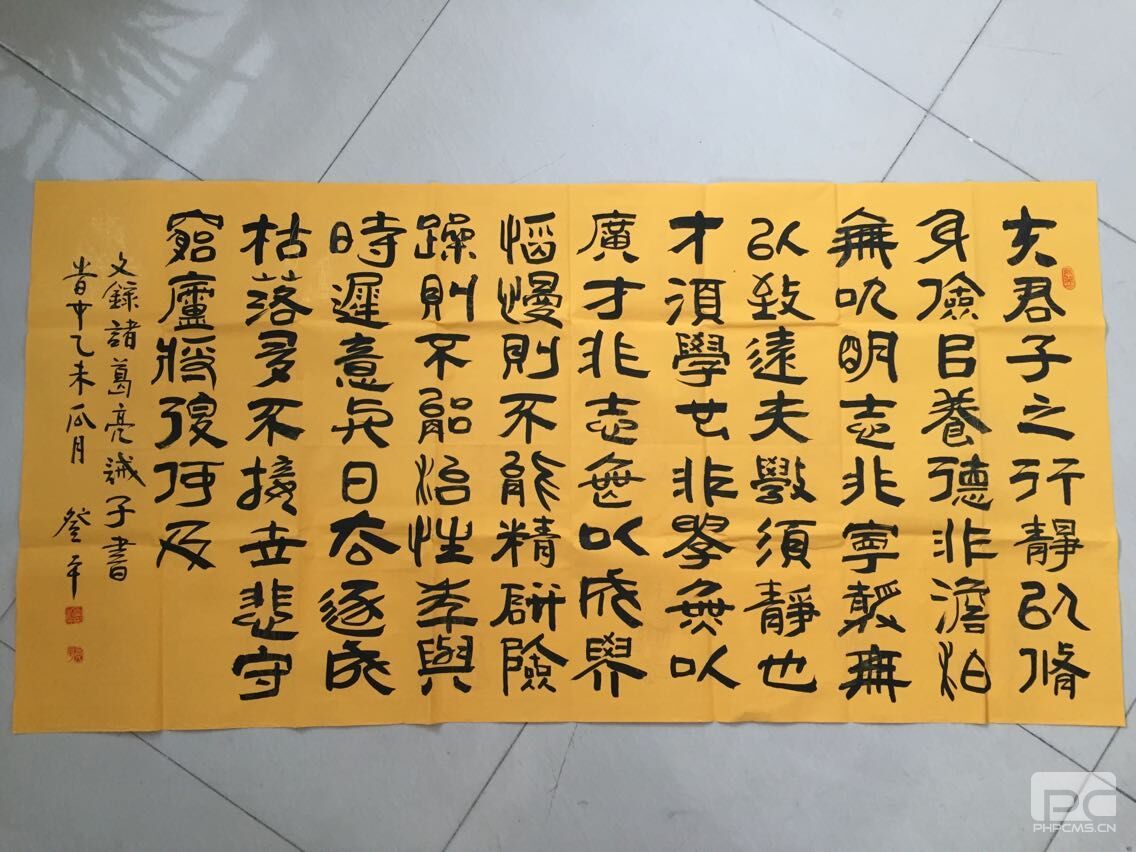 夫君子之行靜以脩
身儉㠯養德非澹泊
無以明志非寧靜無
以致遠夫學須靜也
才須學也非學無以
廣才非志無以成學
慆慢則不能精研險
躁則不能治性年與
時遲意與日去遂成
枯落多不接世悲守
窮廬將復何及
文錄諸葛亮誡子書
昔中乙未瓜月
PHPCMS.CN